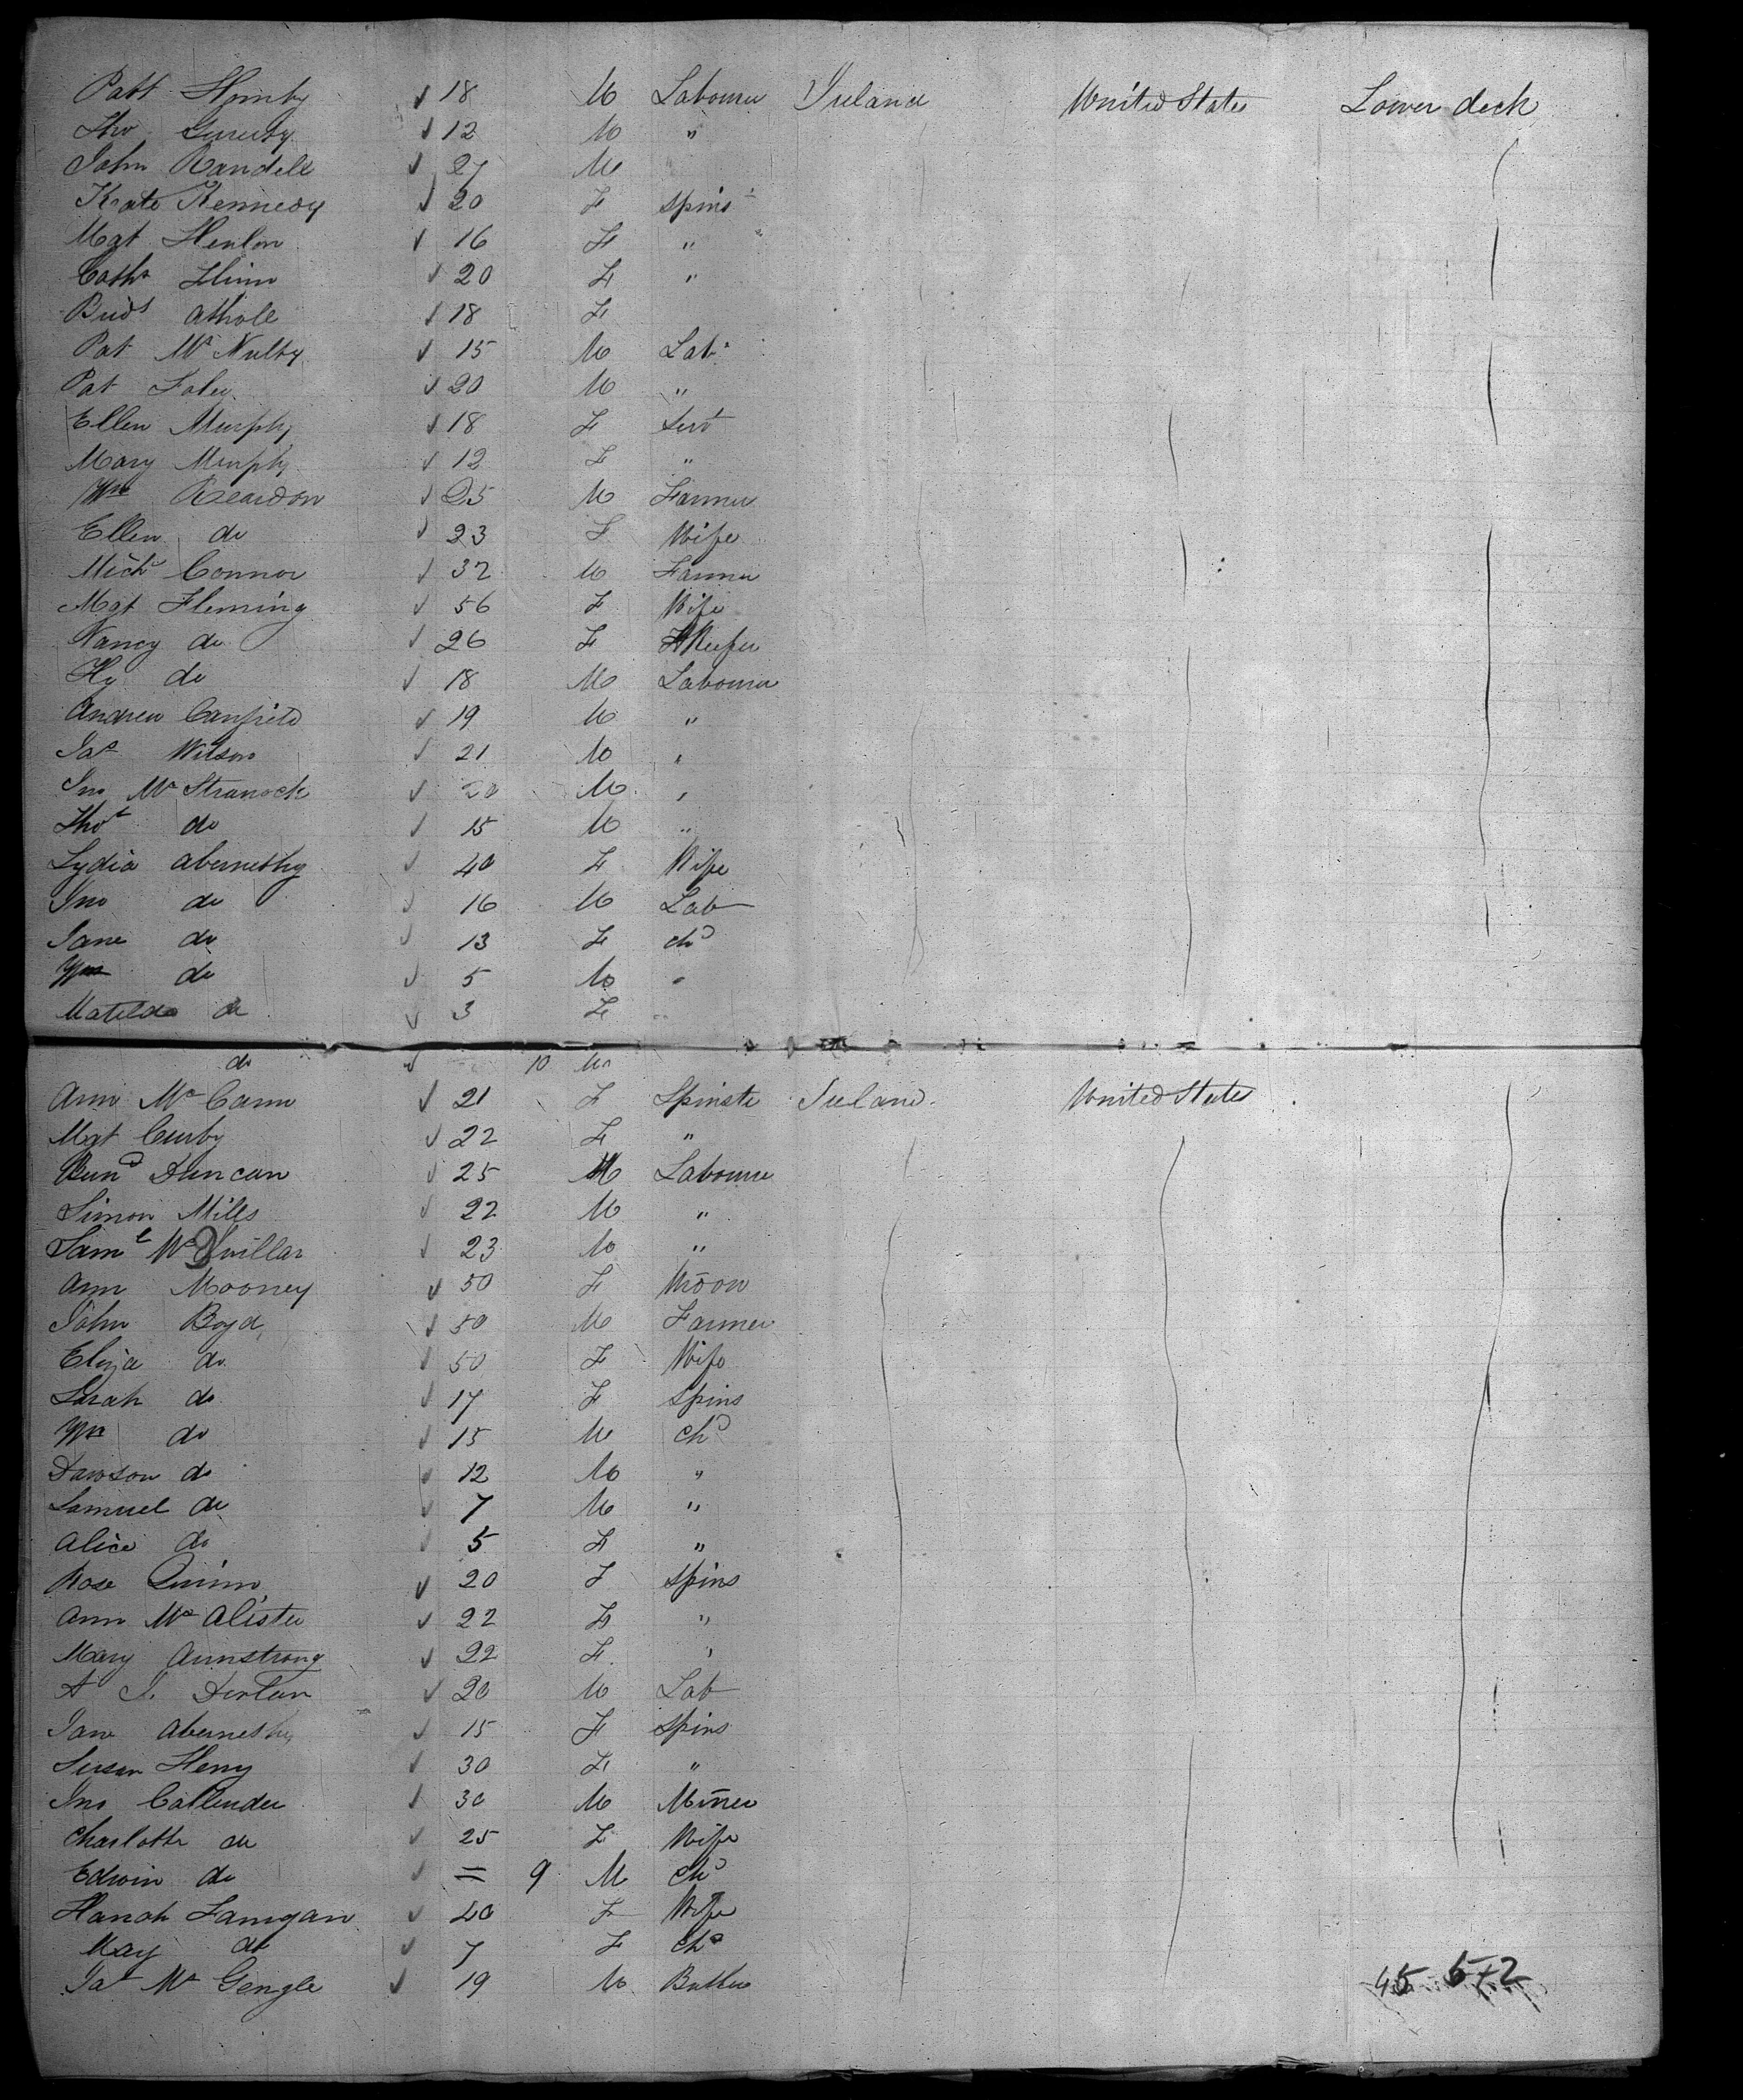 Patt Hornby 18 M Labourer Ireland United States Lower deck
Tho 12 M "
John Randell 27 M
Kate Kennedy 20 F Spins
Mgt Henlon 16 F "
Cathe Flinn 20 F "
Bridt Athole 18 F
Pat Mc Nulty 15 M Lab
Pat Foley 20 M "
Ellen Murphy 18 F Servt
Mary Murphy 12 F "
Wm Reardon 25 M Farmer
Ellen do 23 F Wife
Michl Connor 32 M Farmer
Mgt Fleming 56 F Wife
Nancy do 26 F HKeeper
Hy do 18 M Labourer
Andrew Canfield 19 M "
Jas Wilson 21 M "
Jno Mc Stranock 20 M "
Thos do 15 M "
Lydia Abernethy 40 F Wife
Jno do 16 M Lab
Jane do 13 F chd
Wm do 5 M "
Matilda do 3 F "
do 10 M
Ann Mc Cann 21 F Spinste Ireland United States
Mgt Curby 22 F "
Bernd Duncan 25 M Labourer
Simon Mills 22 M "
Saml Mc Quillar 23 M "
Ann Mooney 50 F
John Boyd 50 M Farmer
Eliza do 50 F Wife
Sarah do 17 F Spins
Wm do 15 M chd
Dawson do 12 M "
Samuel do 7 M "
Alice do 5 F "
Rose Quinn 20 F Spins
Ann Mc Alister 22 F "
Mary Armstrong 22 F "
A J. 20 M Lab
Jane Abernethy 15 F Spins
Susan Henry 30 F "
Jno Callender 30 M Miner
Charlotte do 25 F Wife
Edwin do = 9 M chd
Hanah Lanigan 40 F Wife
May do 7 F chd
Jas Mc Gengle 19 M Buther
45 572